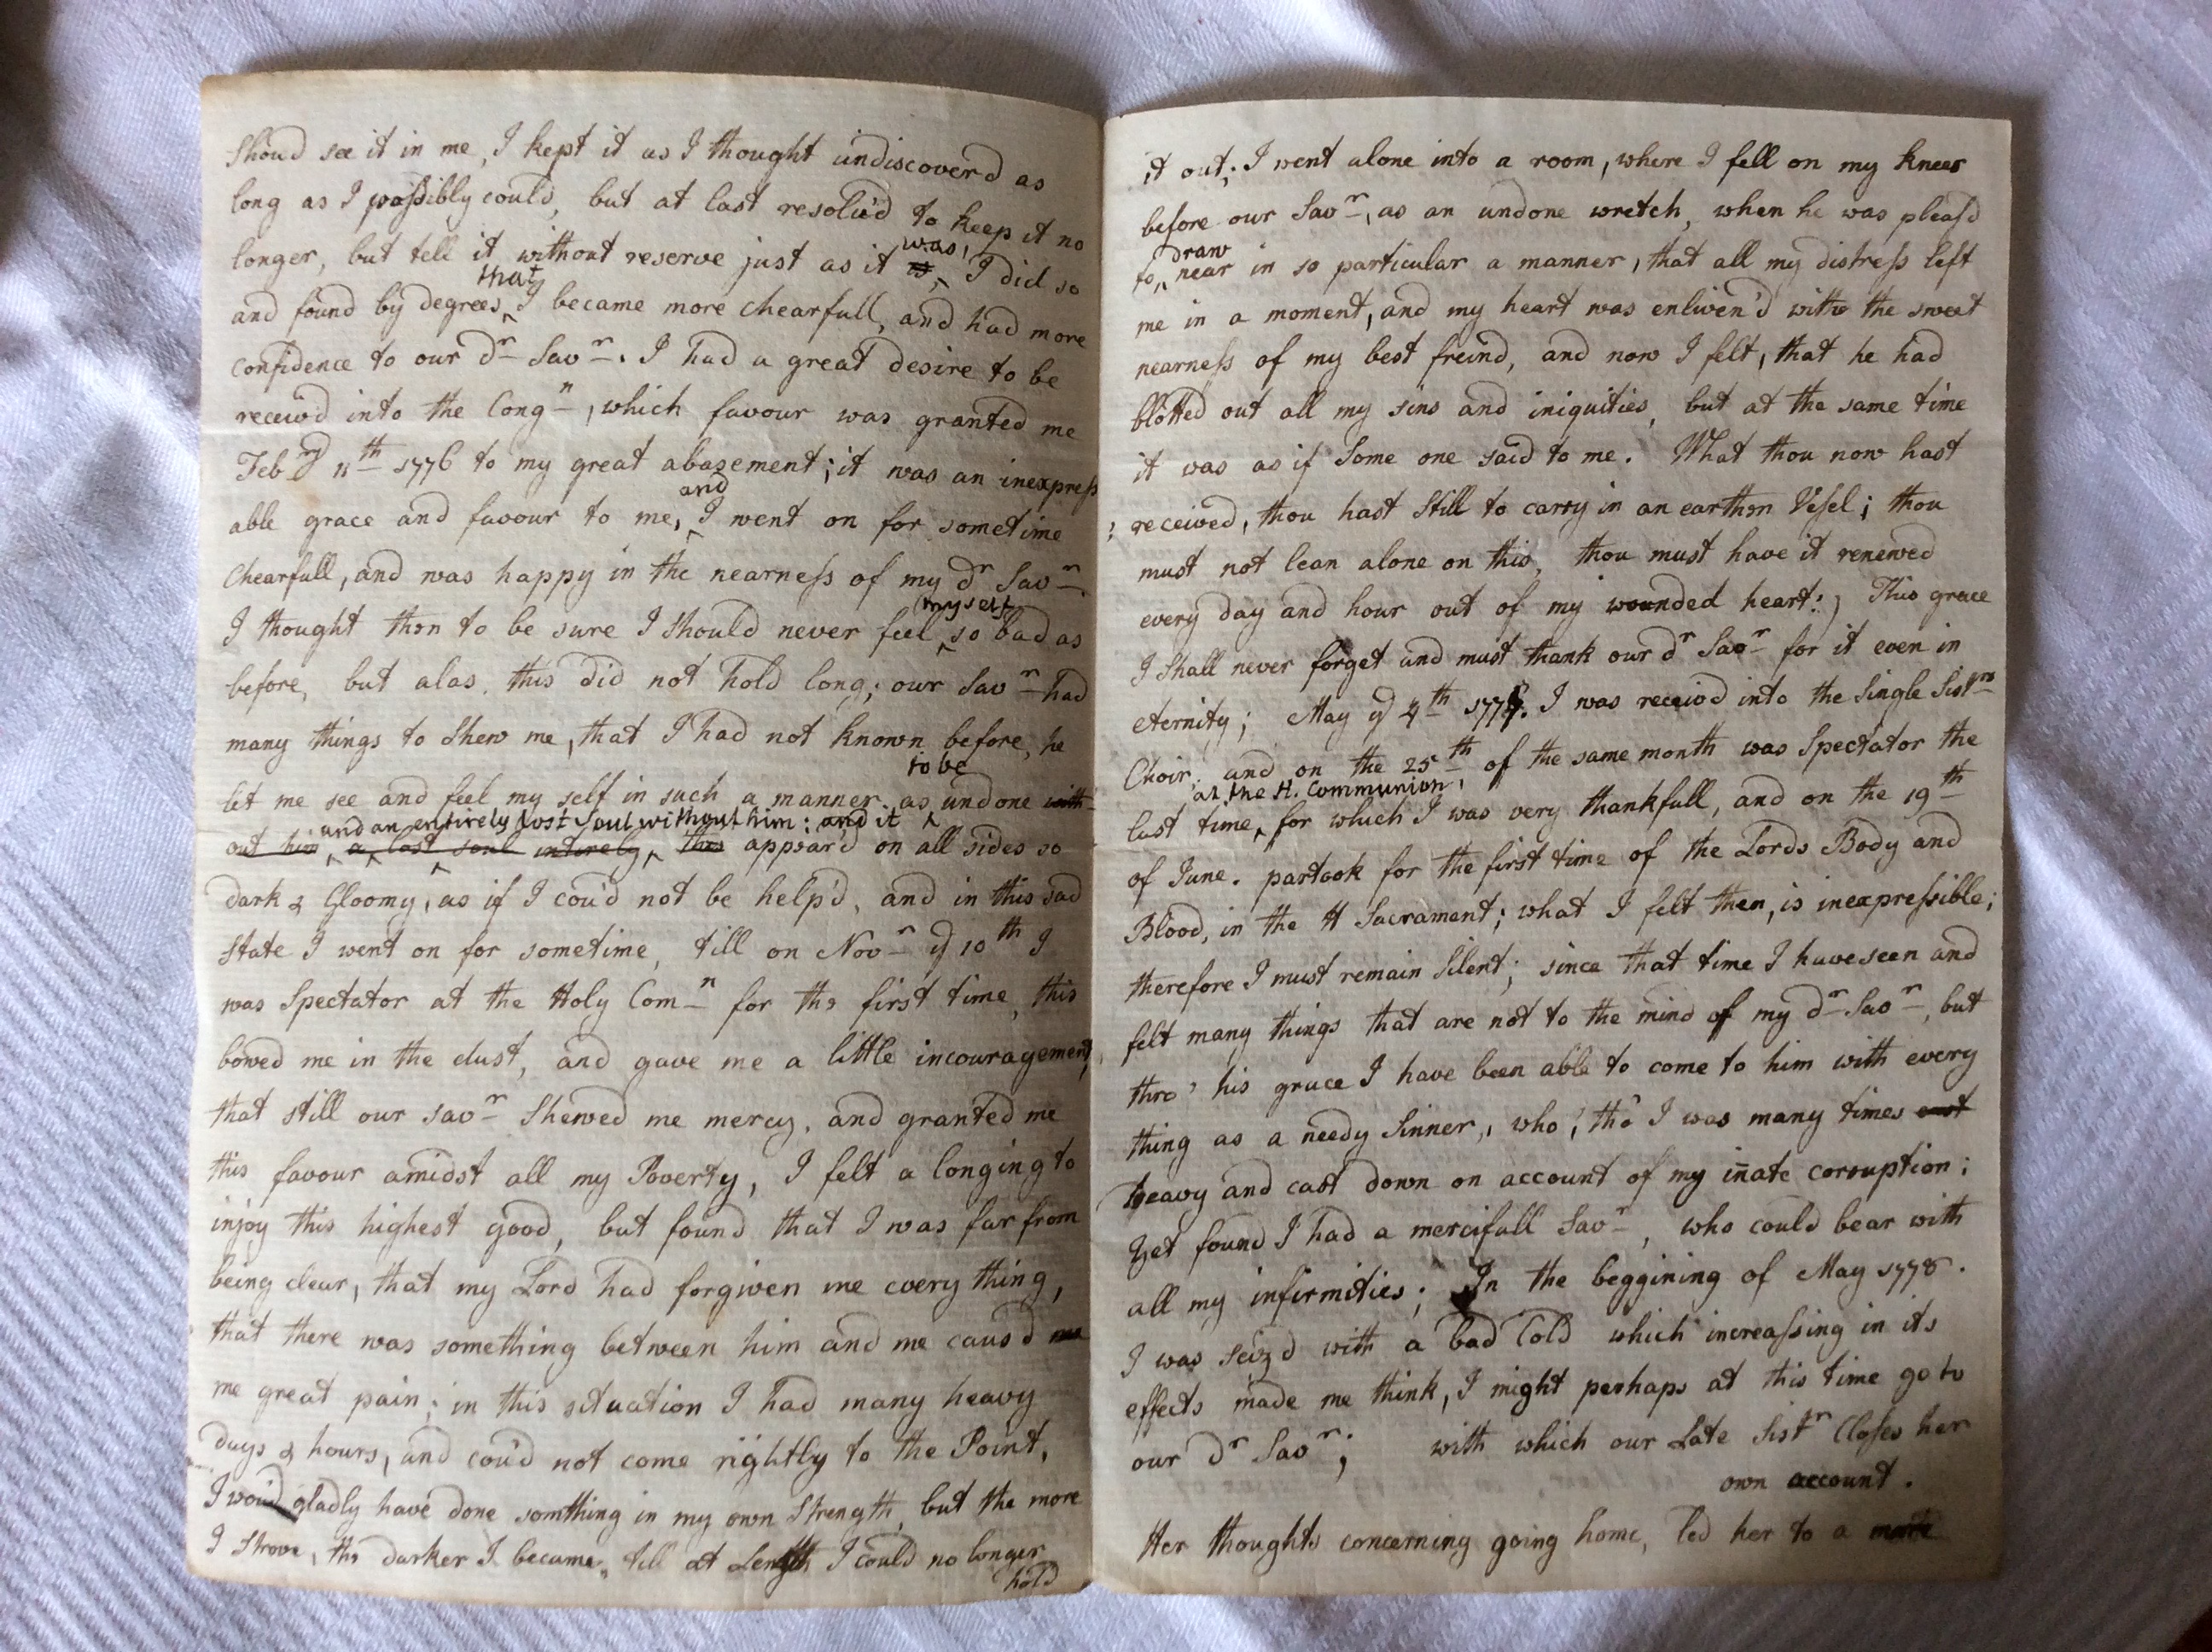 Shoud see it in me, I kept it as I thought undiscoverd as
long as I possibly could, but at last resolv'd to keep it no
longer, but tell it without reserve just as it was, I did so
and found by degrees, that I became more chearfull, and had more
confidence to our dr Savr. I had a great desire to be
receiv'd into the Congn, which favour was granted me
Febry 11th 1776 to my great abasement; it was an inexpress
able grace and favour to me, and I went on for sometime
Chearfull, and was happy in the nearness of my dr Savr.
I thought then to be sure I should never feel myself so bad as
before, but alas, this did not hold long; our Savr had
many things to Shew me, that I had not known before, he
let me see and feel my self in such a manner as to be undone with
out him, a lost soul intirely, this and an entirely lost Soul without him: and it appear'd on all sides so
dark & Gloomy, as if I cou'd not be help'd, and in this sad
State I went on for sometime, till on Novr ye 10th I
was Spectator at the Holy Comn for the first time, this
bowed me in the dust, and gave me a little incouragement,
that still our Savr Shewed me mercy, and granted me
this favour amidst all my Poverty, I felt a longing to
injoy this highest good, but found that I was far from
being clear, that my Lord had forgiven me every thing,
that there was something between him and me caus'd me
me great pain; in this situation I had many heavy
days & hours, and cou'd not come rightly to the Point,
I wou'd gladly have done somthing in my own Strength, but the more
I Strove, the darker I became, till at Length I could no longer
hold
it out; I went alone into a room, where I fell on my knees
before our Savr, as an undone wretch, when he was pleasd
to draw near in so particular a manner, that all my distress left
me in a moment, and my heart was enliven'd with the sweet
nearness of my best freind, and now I felt, that he had
blotted out all my sins and iniquities, but at the same time
it was as if Some one said to me. What thou now hast
received, thou hast Still to carry in an earthen Vessel; thou
must not lean alone on this, thou must have it renewed
every day and hour out of my wounded heart:) This grace
I Shall never forget and must thank our dr Savr for it even in
eternity; May ye 4th 1777. I was receiv'd into the Single Sistrs
Choir, and on the 25th of the same month was Spectator the
last time, at the H. Communion, for which I was very thankfull, and on the 19th
of June. partook for the first time of the Lords Body and
Blood, in the H Sacrament; what I felt then, is inexpressible;
therefore I must remain Silent; since that time I have seen and
felt many things that are not to the mind of my dr Savr, but
thro' his grace I have been able to come to him with every
thing as a needy Sinner, who, tho' I was many times cast
heavy and cast down on account of my inate corruption;
Yet found I had a mercifull Savr, who could bear with
all my infirmities; In the beggining of May 1778.
I was seiz'd with a bad Cold which increassing in its
effects made me think, I might perhaps at this time go to
our dr Savr; with which our Late Sistr Closes her
own account.
Her thoughts concerning going home, led her to a more